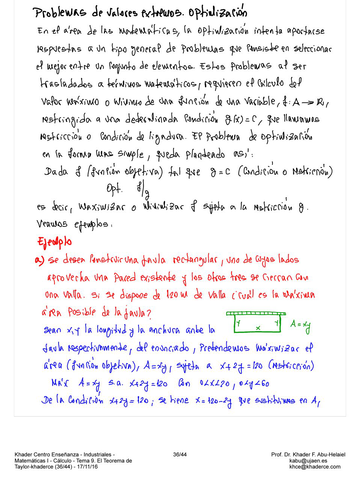 Problemas de valores extremos. Optimización
En el área de las matemáticas, la optimización intenta aportarse
respuestas a un tipo general de Problemas que consiste en seleccionar
el mejor entre un conjunto de elementos. Estos Problemas al ser
trasladados a términos matemáticos, requieren el cálculo del
valor máximo o mínimo de una función de una variable, f: A → R,
restringida a una determinada Condición g(x) = C, que llamamos
restricción o Condición de ligadura. El Problema de optimización
en la forma más simple, queda planteado así:
Dada f (función objetiva) tal que g = C (Condición o restricción)
Opt. f/g
es decir, maximizar o minimizar f sujeta a la restricción g.
Veamos ejemplos.
Ejemplo
a) Se desea Construir una jaula rectangular, uno de cuyos lados
aprovecha una Pared existente y los otros tres se cierran con
una valla. Si se dispone de 120 m de valla ¿cuál es la máxima
área Posible de la jaula?
Sean x, y la longitud y la anchura ante la
y x y A = xy
jaula respectivamente, del enunciado, Pretendemos maximizar el
área (función objetiva), A = xy, sujeta a x + 2y = 120 (restricción)
Máx A = xy s.a. x + 2y = 120 Con 0 < x < 120, 0 < y < 60
De la Condición x + 2y = 120, se tiene x = 120 - 2y que sustituimos en A,
Khader Centro Enseñanza - Industriales -
Matemáticas I - Cálculo - Tema 9. El Teorema de
Taylor-khaderce (36/44) - 17/11/16
36/44
Prof. Dr. Khader F. Abu-Helaiel
kabu@ujaen.es
khce@khaderce.com